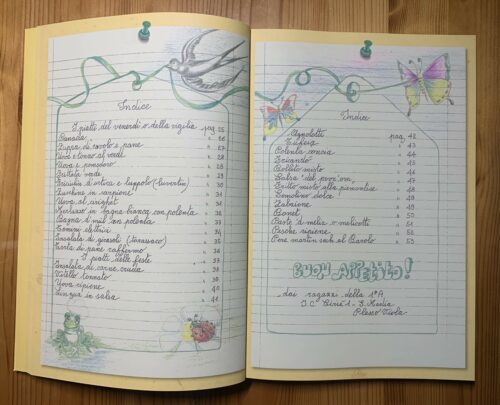 Indice
I piatti del venerdì o della vigilia pag. 25
Panada " 26
Zuppa di cavolo e pane " 27
Uova e tonno al verde " 28
Uova e pomodoro " 28
Frittata verde " 29
Frittata d'ortica e luppolo (luvertin) " 30
Zucchine in carpione " 31
Uova al cirighet " 31
Merluzzo in bagna bianca con polenta " 32
Bagna d'mil con polenta " 33
Tomini elettrici " 34
Insalata di girasoli (tarassaco) " 34
Torta di pane raffermo " 35
I piatti delle feste " 37
Insalata di carne cruda " 38
Vitello tonnato " 39
Uova ripiene " 40
Lingua in salsa " 41
Indice
Agnolotti pag. 42
" 43
Polenta concia " 44
Fricandò " 45
Bollito misto " 46
Salsa del pover'om " 47
Fritto misto alla piemontese " 48
Semolino dolce " 49
Zabaione " 49
Bonet " 50
Paste 'd melia o melicotti " 51
Pesche ripiene " 52
Pere martin cech al Barolo " 53
BUON APPETITO!
dai ragazzi della 1ªA
I.C. Ciriè 1 - S. Media
Plesso Viola